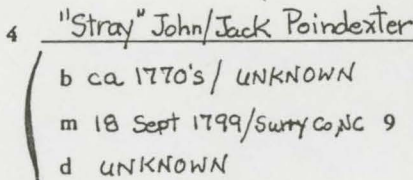 4 "Stray" John/Jack Poindexter
b ca 1770's / UNKNOWN
m 18 Sept 1799/Surry Co, NC 9
d UNKNOWN